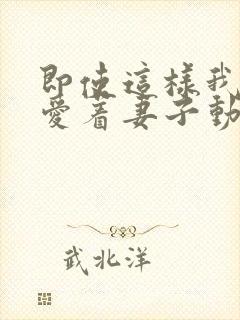 即使這樣我
愛着妻子動
武北洋